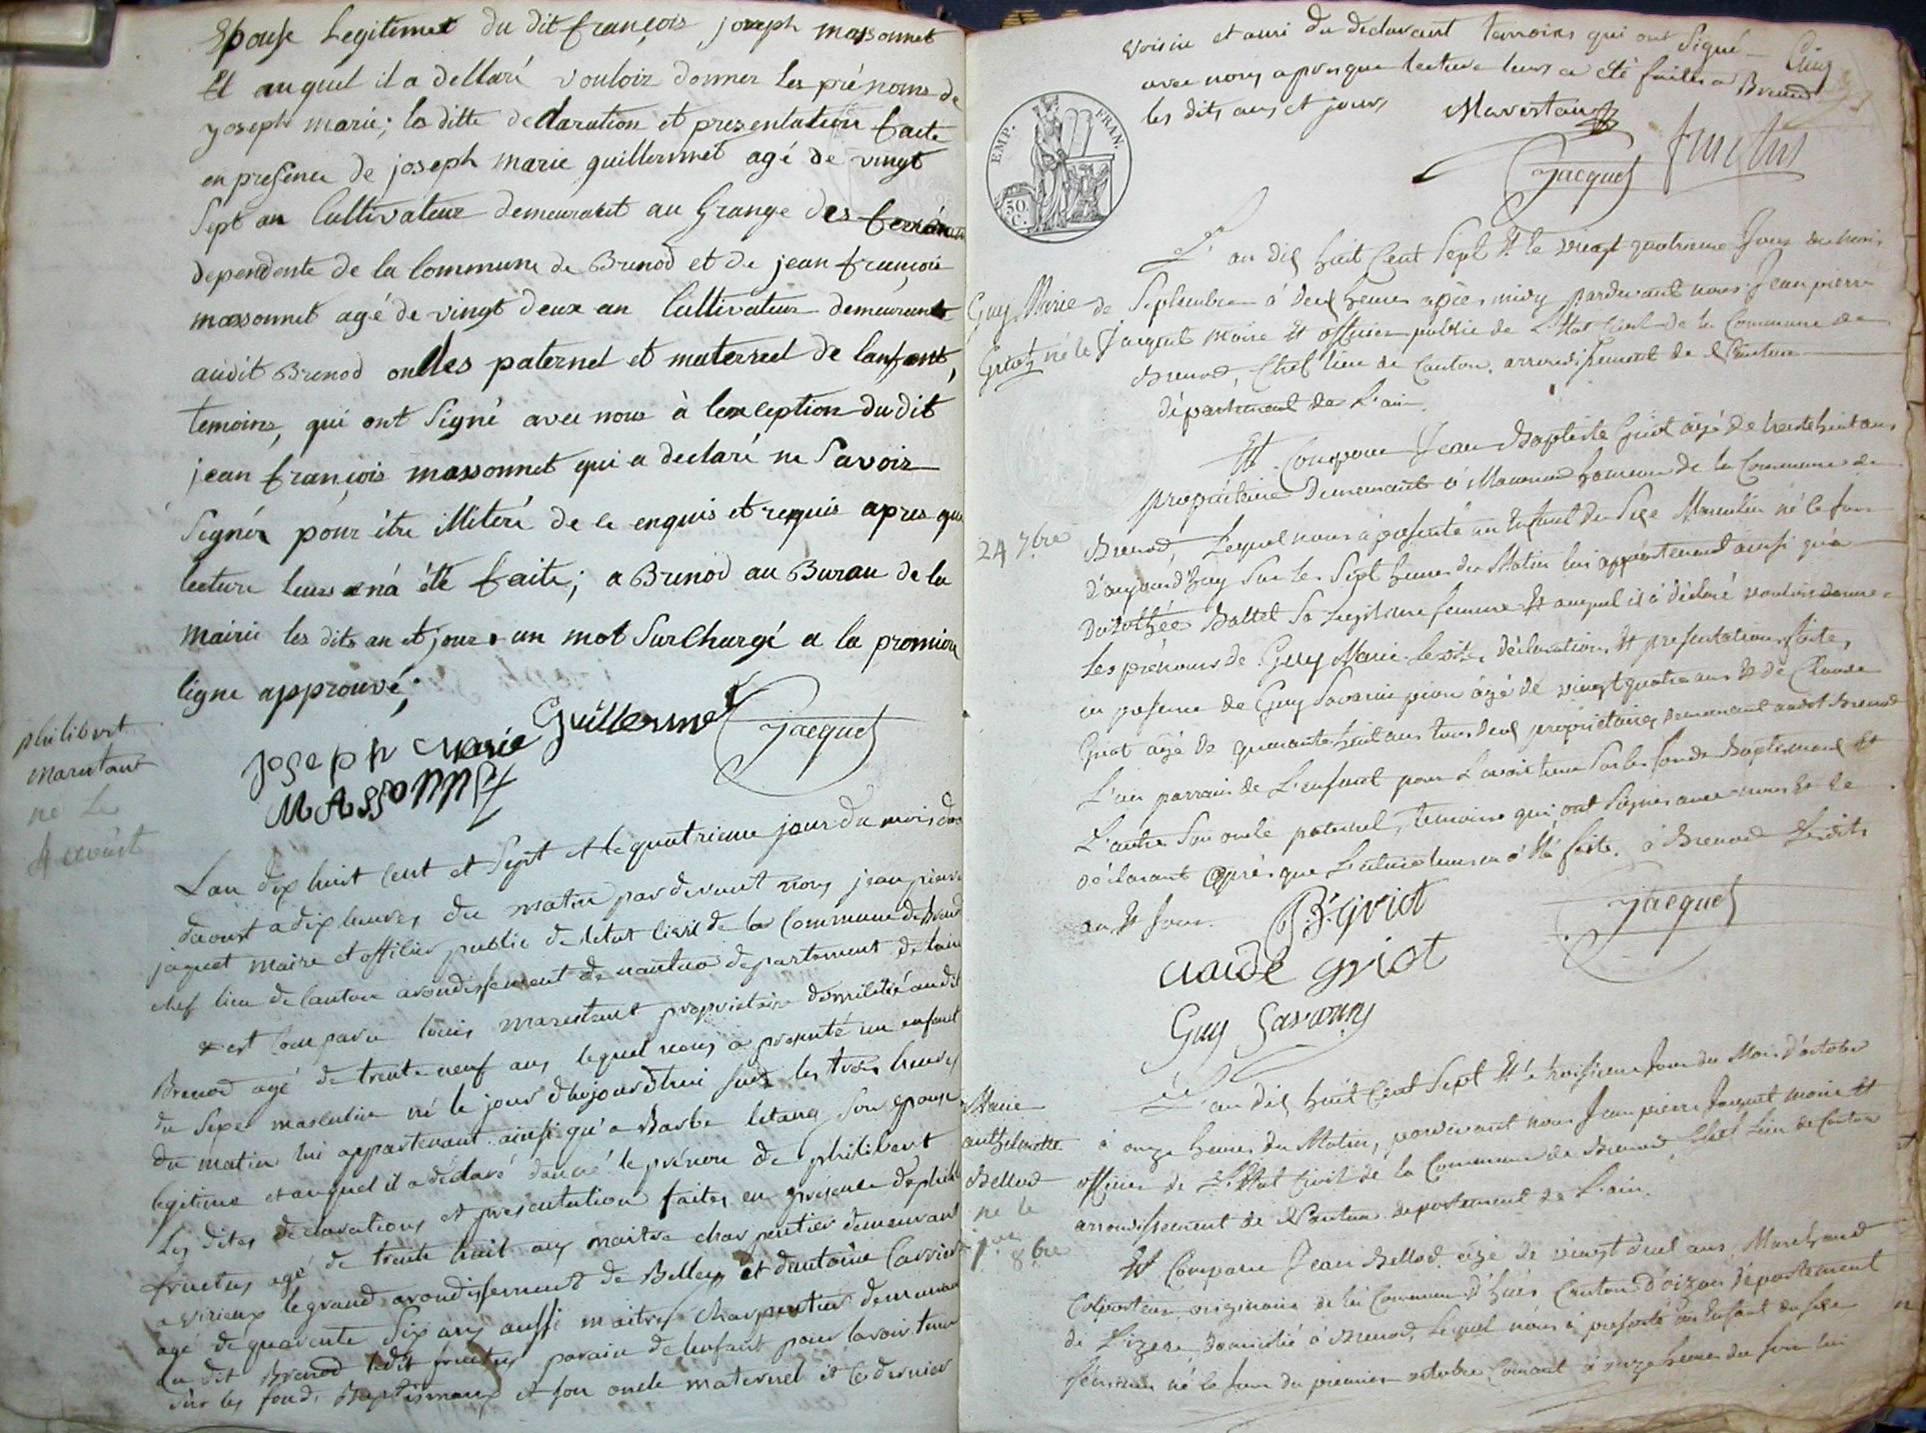 Epouse Legitimet du dit françois joseph massonnet
Et auquel il a dellaré vouloir donner les prénoms de
joseph marie; la ditte dellaration et presentation faite
en presence de joseph marie guillermet agé de vingt
Sept an Cultivateur demeurant au Grange des
dependente de la Commune de Brenod et de jean françois
massonnet agé de vingt deux an Cultivateur demeurant
audit Brenod oncles paternel et maternel de lanfant,
temoins, qui ont Signé avec nous à lexception du dit
jean françois massonnet qui a declaré ne Savoir
Signér pour être illiteré de ce enquis et requis apres que
lecture leurs en a été faite; a Brenod au Bureau de la
mairie les dits an et jour un mot Surchargé a la promiere
ligne approuvé;
joseph marie Guillermet
Jacquet
MASSONNET
philibert
marestant
né le
4 aoust
Lan dix huit Cent et Sept et le quatrieme jour du mois
daoust a dix heures du matin par devant nous jean pierre
jaquet maire et officier public de letat Civil de la Commune de Brenod
chef lieu de Canton arondissement de nantua departement de lain
est Comparu louis marestant propriétaire domicilié audit
Brenod agé de trente neuf ans lequel nous a presenté un enfant
du Sexe masculin né le jour d'hujourdhui sur les trois heures
du matin lui appartenant ainsi qu'a Barbe letang Son epouse
legitime et auquel il a déclaré donné le prénom de philibert
Les dites declarations et presentation faites en présence de
fructus agé de trente huit ans maitre charpentier demeurant
a virieux le grand arondissement de Belley et dantoine Carrier
agé de quarente Six ans aussi maitre Charpentier demeurant
au dit Brenod ledit fructus parain de lenfant pour lavoir tenu
sur les fonds Baptismaux et son oncle maternel et le dernier
voisin et ami du declarant temoins qui ont Signé
avec nous apres que lecture leurs a été faites a Brenod
les dits ans et jours
Cinq
EMP. FRAN.
50 C.
Marestant
Jacquet
fructus
L'an dix huit Cent Sept et le vingt quatrieme Jour du mois
de Septembre à deux heures après midy pardevant nous Jean pierre
Jacquet maire et officier public de L'Etat Civil de la Commune de
Brenod, Chef lieu de Canton, arrondissement de Nantua
département de L'ain.
Guy Marie
Griot né le
24 7bre
Est Comparu Jean Baptiste Griot agé de trente huit ans
propriétaire demeurant à hameau de la Commune de
Brenod, Lequel nous a présenté un Enfant du Sexe Masculin né le Jour
d'aujourd'huy Sur les Sept heures du Matin lui appartenant ainsi qu'à
Dorothée Ballet Sa Legitime femme et auquel il a déclaré vouloir donner
Les prénoms de Guy Marie Lesdites déclaration et présentation faite,
en présence de Guy Savarin agé de vingt quatre ans et de Claude
Griot agé de quarante huit ans tous deux propriétaires, demeurant audit Brenod
L'un parrain de L'enfant pour L'avoir tenu Sur les fonds Baptismaux et
L'autre Son oncle paternel, temoins qui ont Signés avec nous et le
déclarant après que Lecture leur en a été faite. à Brenod Lesdits
an et Jour.
B. Griot
Jacquet
claude griot
Guy Savarin
L'an dix huit Cent Sept et le troisieme Jour du Mois d'octobre
à onze heures du Matin, pardevant nous Jean pierre Jacquet maire et
officier de L'Etat Civil de la Commune de Brenod, Chef Lieu de Canton
arrondissement de Nantua departement de L'ain.
Marie
anthelmette
Bellod
né le
1er 8bre
Est Comparu Jean Bellod agé de vingt deux ans, Marchand
Colporteur originaire de la Commune d'huès Canton d'oizan département
de L'izere, domicilié à Brenod, Lequel nous a présenté un Enfant du sexe
féminin né le Jour du premier octobre Courant à onze heures du soir lui